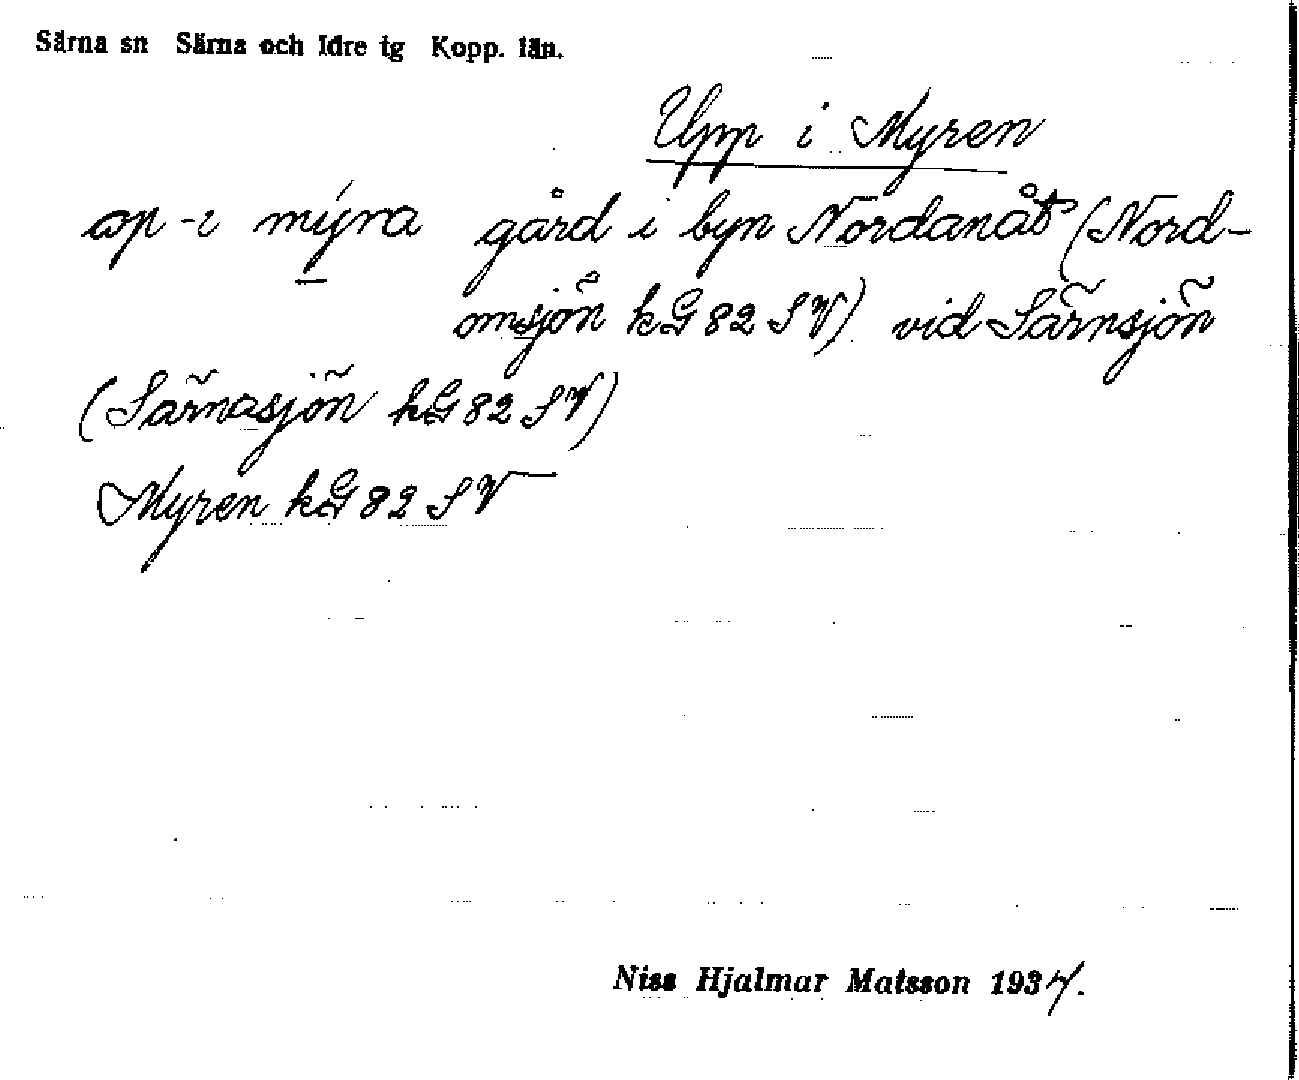 Särna sn Särna och Idre tg Kopp. län.
Upp i Myren
op-ı mýra gård i byn Nordanåt (Nord-
omsjön kG 82 SV) vid Särnsjön
(Särnasjön kG 82 SV)
Myren kG 82 SV
Niss Hjalmar Matsson 1937.